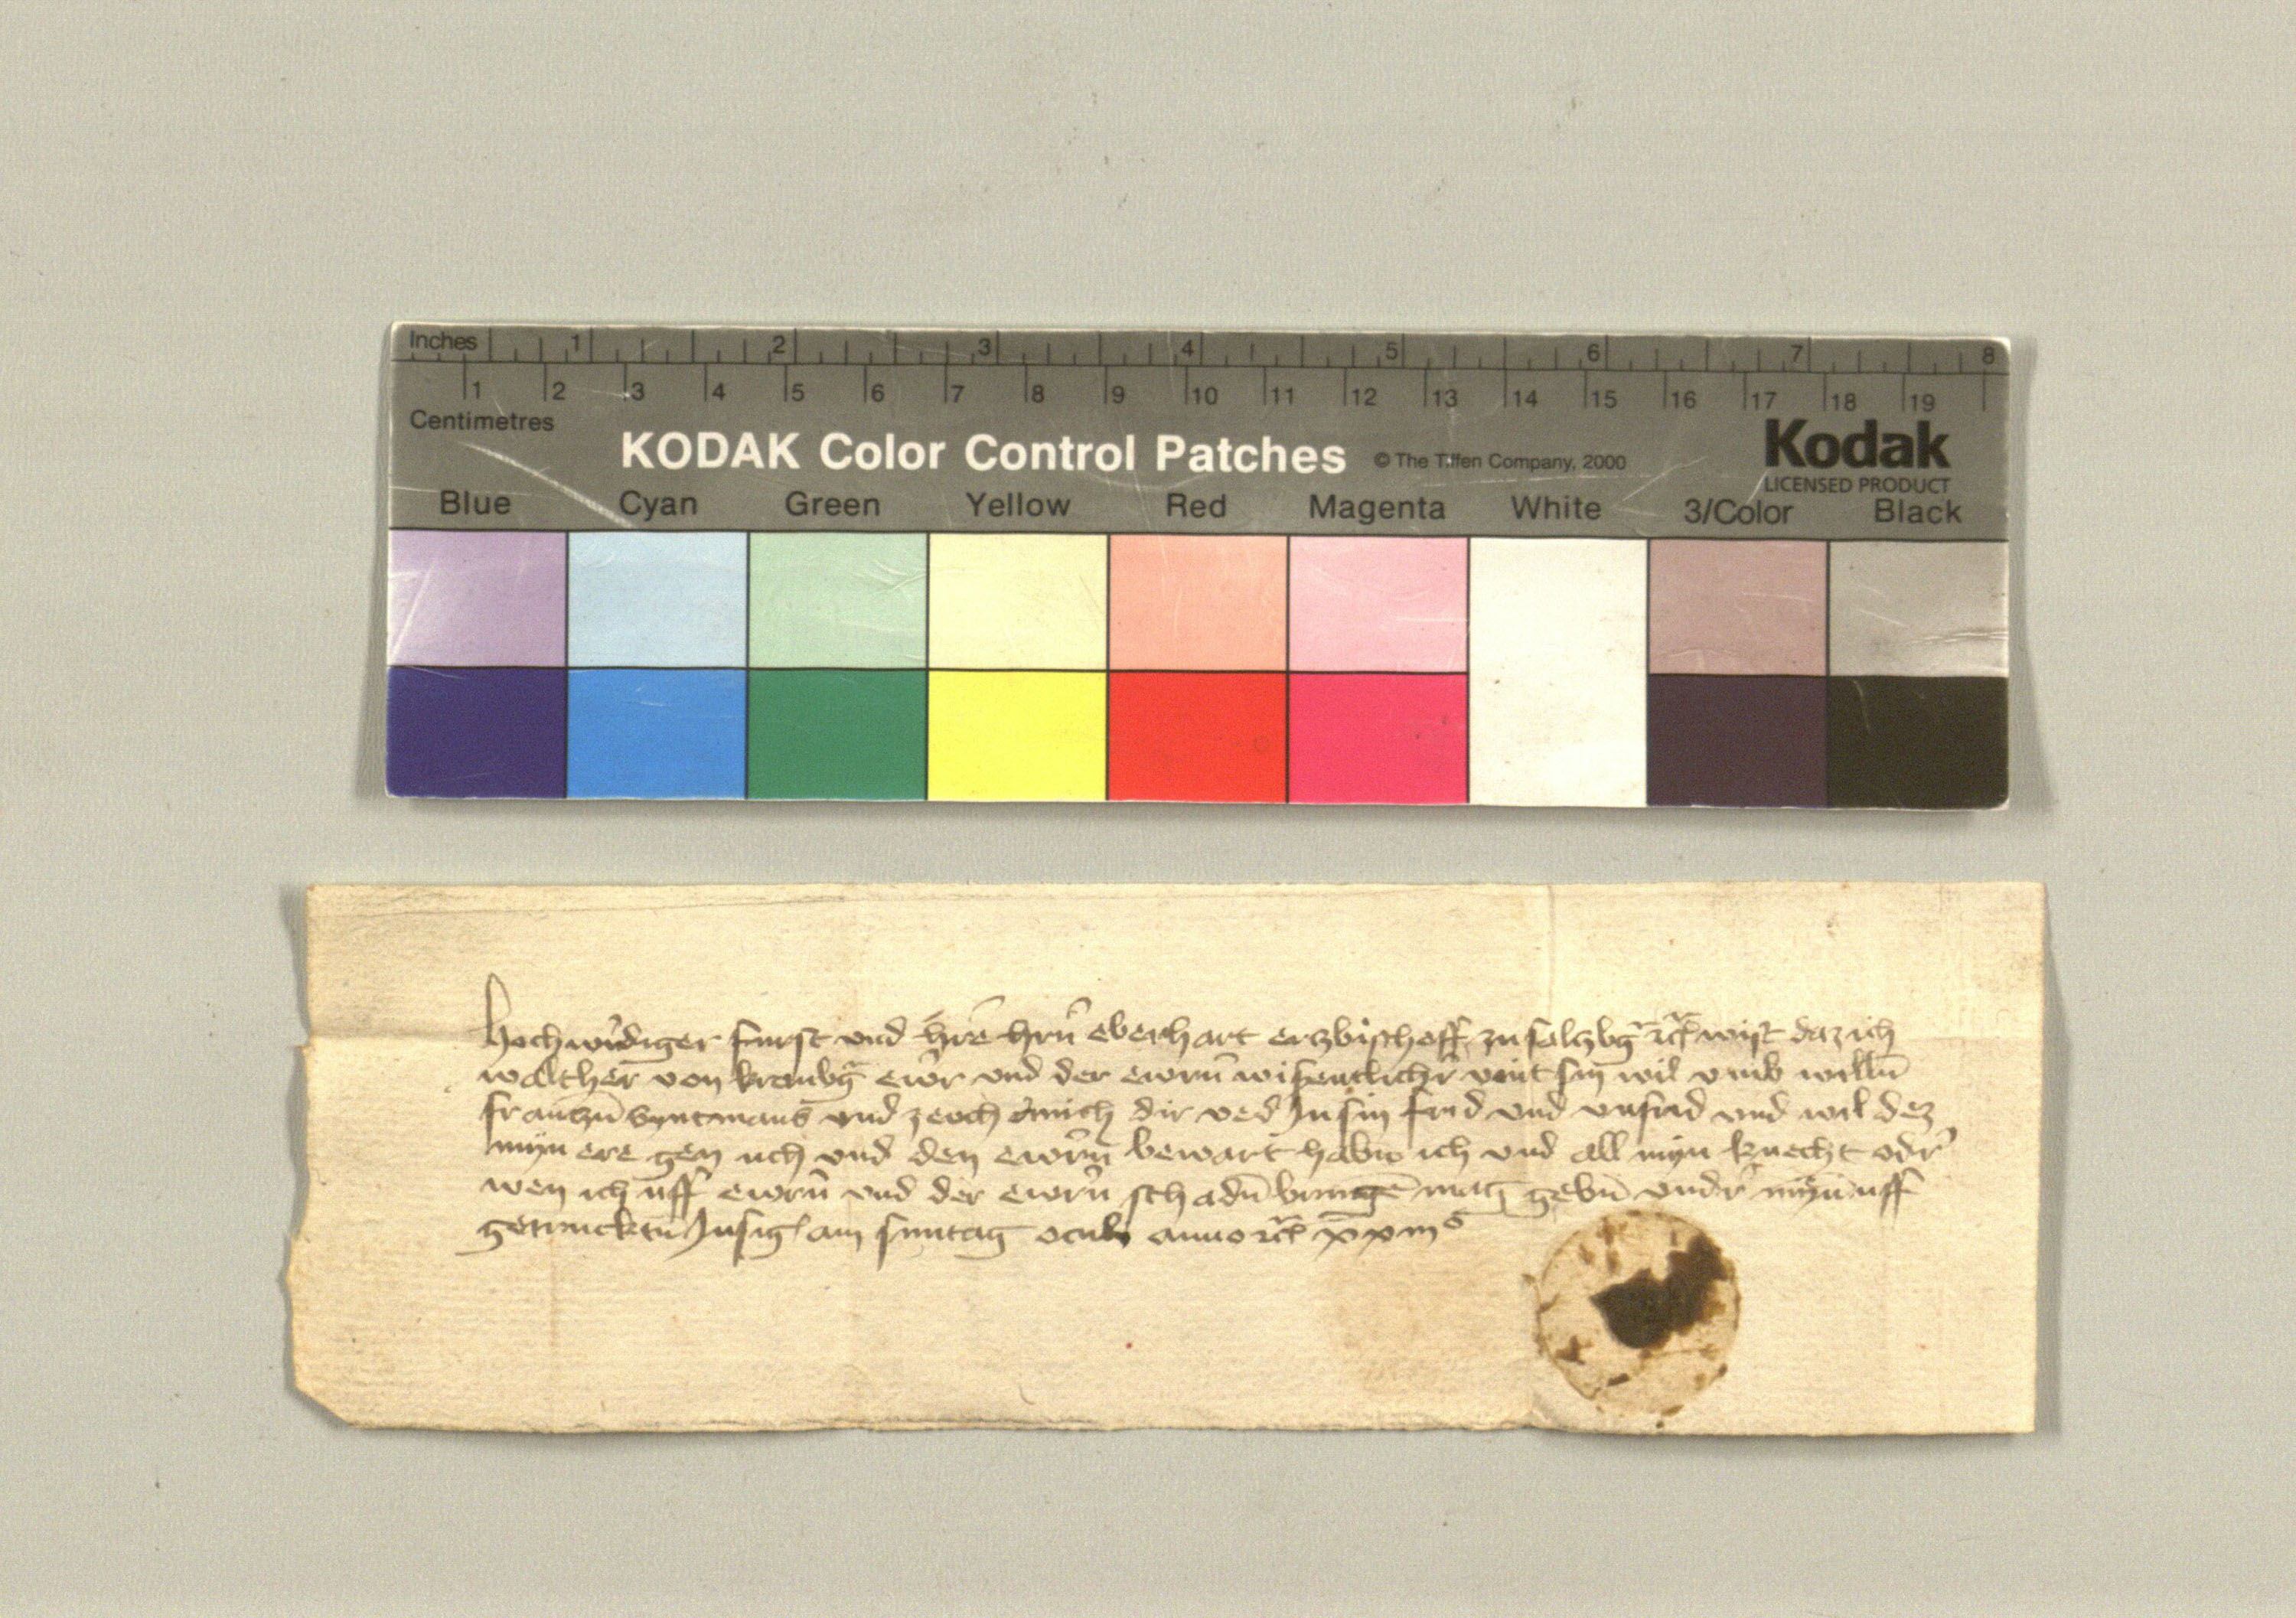 Inches 1 2 3 4 5 6 7 8
1 2 3 4 5 6 7 8 9 10 11 12 13 14 15 16 17 18 19
Centimetres
KODAK Color Control Patches © The Tiffen Company, 2000 Kodak
LICENSED PRODUCT
Blue Cyan Green Yellow Red Magenta White 3/Color Black
hochwirdiger furst und hre hrn eberhart erzbischoff zu salzbg wist daz ich
walther von ewr und der ewrn wisentlichr vint sin wil umb willn
franczn und zeoch mich dir ved In sin frid und unfrid und wil dez
myn ere gen uch und den ewrn bewart habn ich und all myn knecht odr
wen ich uff ewrn und der ewrn schadn bringe mag gebn undr mynn uff
getrucktn Insigl am suntag oculi anno